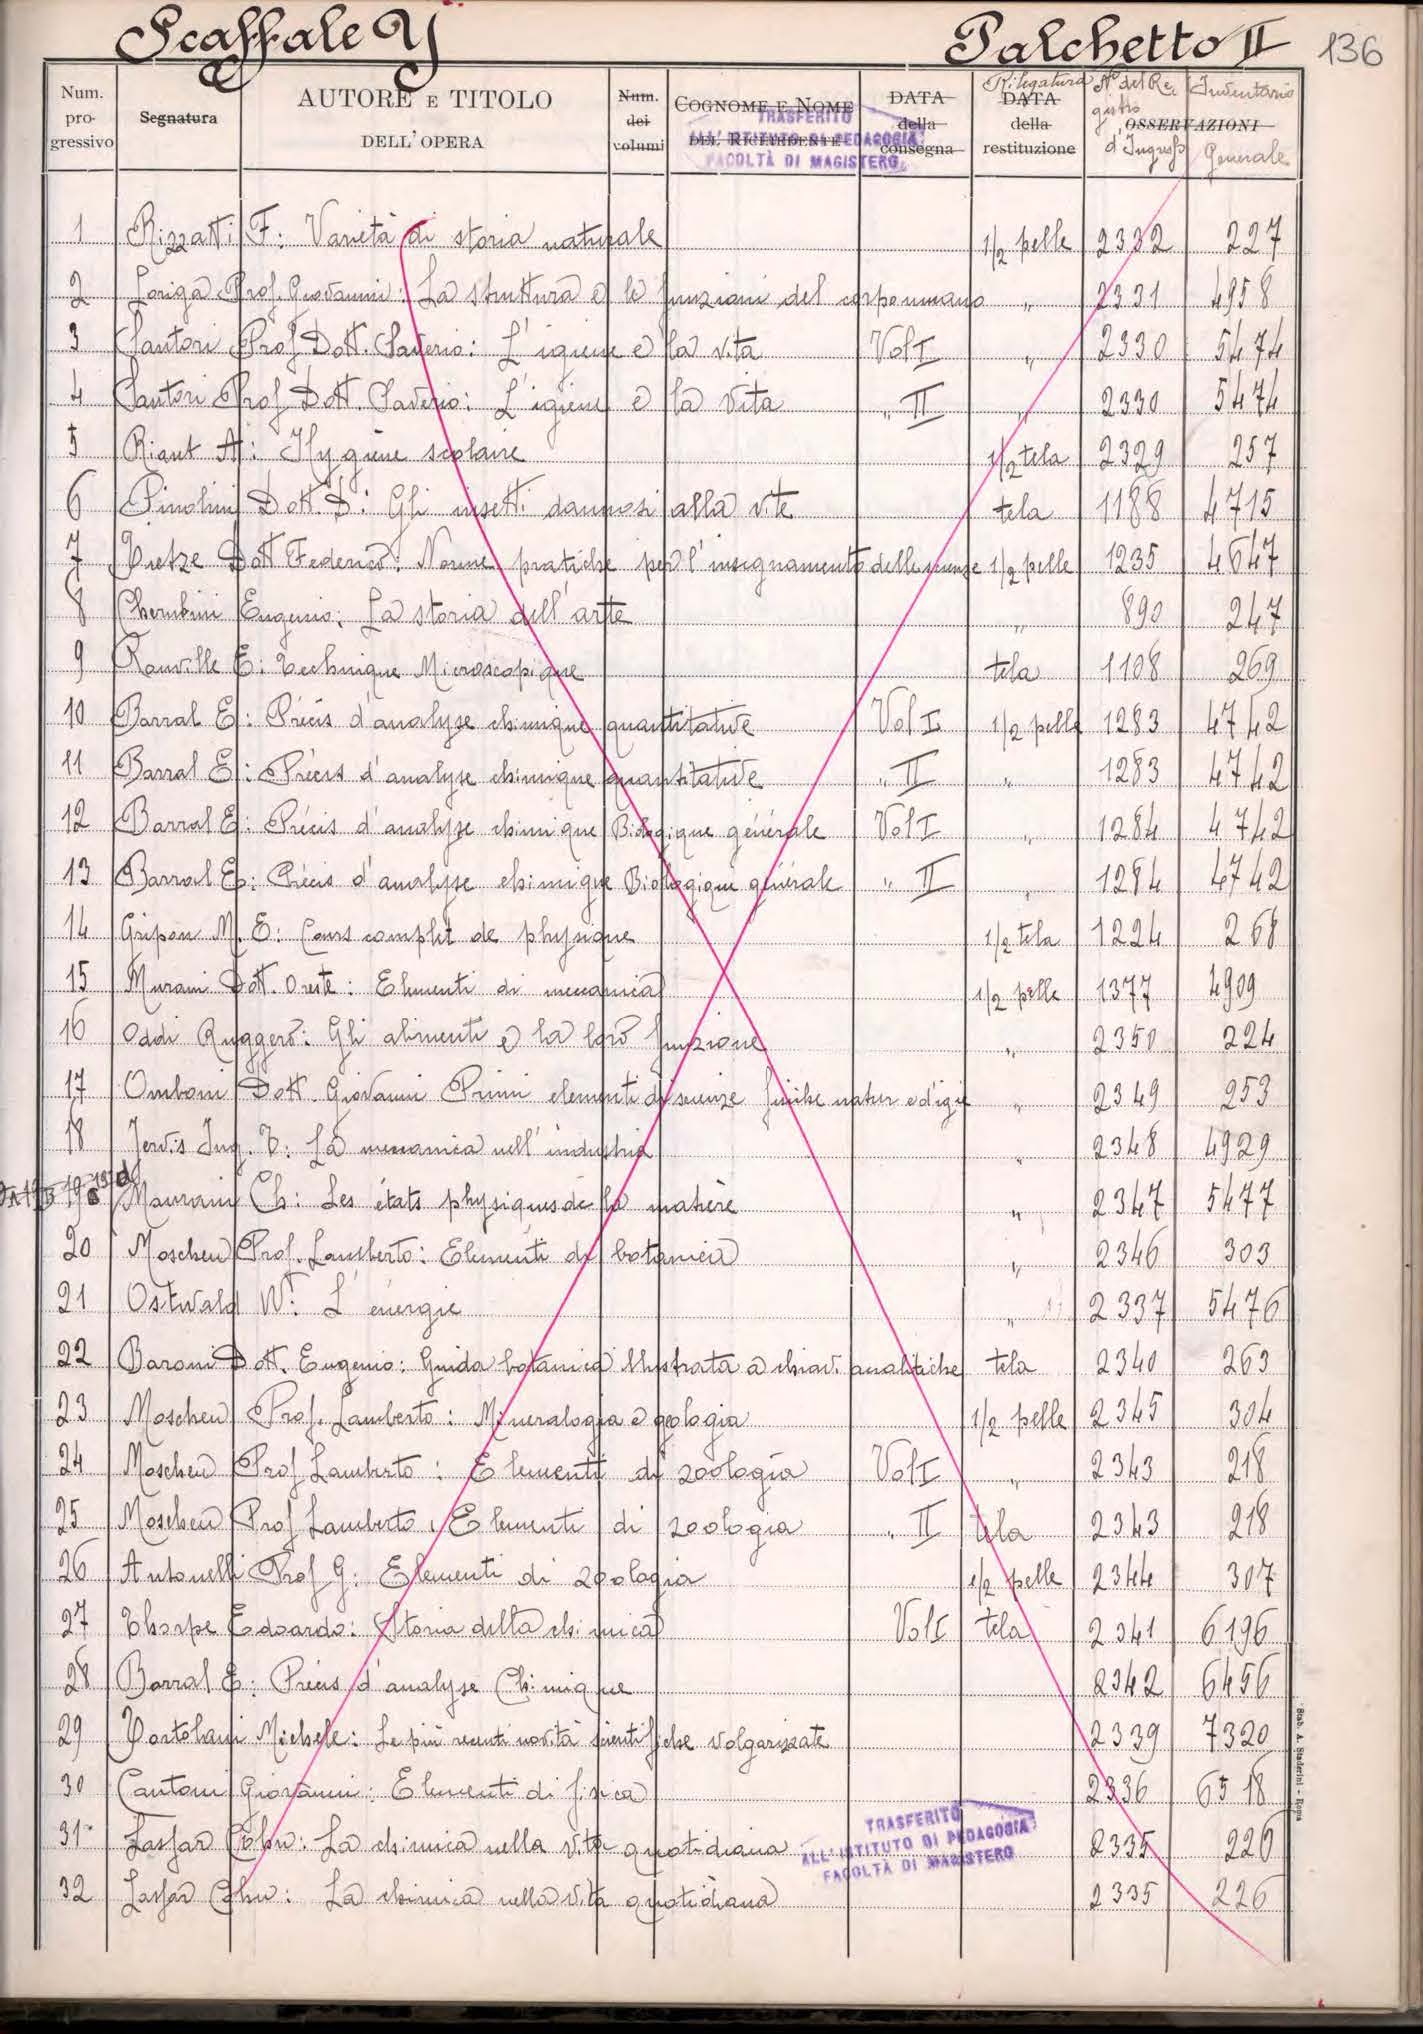 Scaffale Y Palchetto II 136
Num. progressivo Segnatura AUTORE E TITOLO DELL'OPERA Num. dei volumi COGNOME E NOME DEL RICHIEDENTE DATA della consegna Rilegatura DATA della restituzione N° del Registro d'Ingresso OSSERVAZIONI Inventario Generale
TRASFERITO
ALL'ISTITUTO DI PEDAGOGIA
FACOLTÀ DI MAGISTERO
1 Rizzatti F: Varietà di storia naturale 1/2 pelle 2332 227
2 Loriga Prof. Giovanni: La struttura e le funzioni del corpo umano " 2331 4958
3 Santori Prof Dott. Saverio: L'igiene e la vita Vol I " 2330 5474
4 Santori Prof Dott. Saverio: L'igiene e la vita " II " 2330 5474
5 Riant A: Hygiène scolaire 1/2 tela 2329 257
6 Pinolini Dott D: Gli insetti dannosi alla vite tela 1188 4715
7 Dott Federico: Norme pratiche per l'insegnamento delle scienze 1/2 pelle 1235 4647
8 Cherubini Eugenio: La storia dell'arte " 890 247
9 Ranville E: Technique Microscopique tela 1108 269
10 Barral E: Précis d'analyse chimique quantitative Vol I 1/2 pelle 1283 4742
11 Barral E: Précis d'analyse chimique quantitative " II " 1283 4742
12 Barral E: Précis d'analyse chimique Biologique générale Vol I " 1284 4742
13 Barral E: Précis d'analyse chimique Biologique générale " II " 1284 4742
14 Gripon M. E: Cours complet de physique 1/2 tela 1224 268
15 Murani Dott. Oreste: Elementi di meccanica 1/2 pelle 1377 4909
16 Oddi Ruggero: Gli alimenti e la loro funzione " 2350 224
17 Omboni Dott. Giovanni Primi elementi di scienze fisiche natur ed igie " 2349 253
18 Jervis Ing. T: La meccanica nell'industria " 2348 4929
19 Maurain Ch: Les états physiques de la matière " 2347 5477
20 Moschen Prof. Lamberto: Elementi di botanica " 2346 303
21 Ostwald W: L'énergie " 2337 5476
22 Baroni Dott. Eugenio: Guida botanica illustrata a chiavi analitiche tela 2340 263
23 Moschen Prof. Lamberto: Mineralogia e geologia 1/2 pelle 2345 304
24 Moschen Prof Lamberto: Elementi di zoologia Vol I " 2343 218
25 Moschen Prof Lamberto: Elementi di zoologia " II tela 2343 218
26 Antonelli Prof G: Elementi di zoologia 1/2 pelle 2344 307
27 Thorpe Edoardo: Storia della chimica Vol I tela 2341 6196
28 Barral E: Précis d'analyse Chimique 2342 6456
29 Michele: Le più recenti novità scientifiche volgarizzate 2339 7320
30 Cantoni Giovanni: Elementi di fisica 2336 6518
31 Lassar Cohn: La chimica nella vita quotidiana 2335 226
32 Lassar Cohn: La chimica nella vita quotidiana 2335 226
TRASFERITO
ALL'ISTITUTO DI PEDAGOGIA
FACOLTÀ DI MAGISTERO
Stab. A. Staderini - Roma